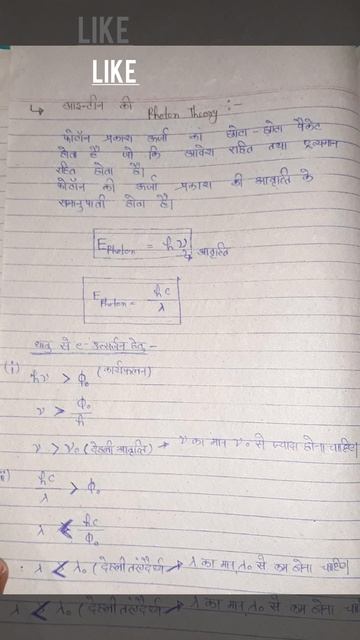 LIKE
LIKE
↳ आइन्टीन की Photon Theory :-
फोटॉन प्रकाश ऊर्जा का छोटा-छोटा पैकेट
होता है जो कि आवेश रहित तथा द्रव्यमान
रहित होता है।
फोटॉन की ऊर्जा प्रकाश की आवृत्ति के
समानुपाती होता है।
E_Photon = hν
↳ आवृत्ति
E_Photon = hc/λ
धातु से e⁻ उत्सर्जन हेतु -
(i) hν > ϕ₀ (कार्यफलन)
ν > ϕ₀/h
ν > ν₀ (देहली आवृत्ति) → ν का मान ν₀ से ज्यादा होना चाहिए
hc/λ > ϕ₀
λ < hc/ϕ₀
λ < λ₀ (देहली तरंगदैर्ध्य → λ का मान λ₀ से कम होना चाहिए
λ < λ₀ (देहली तरंगदैर्ध्य → λ का मान λ₀ से कम होना चाहि